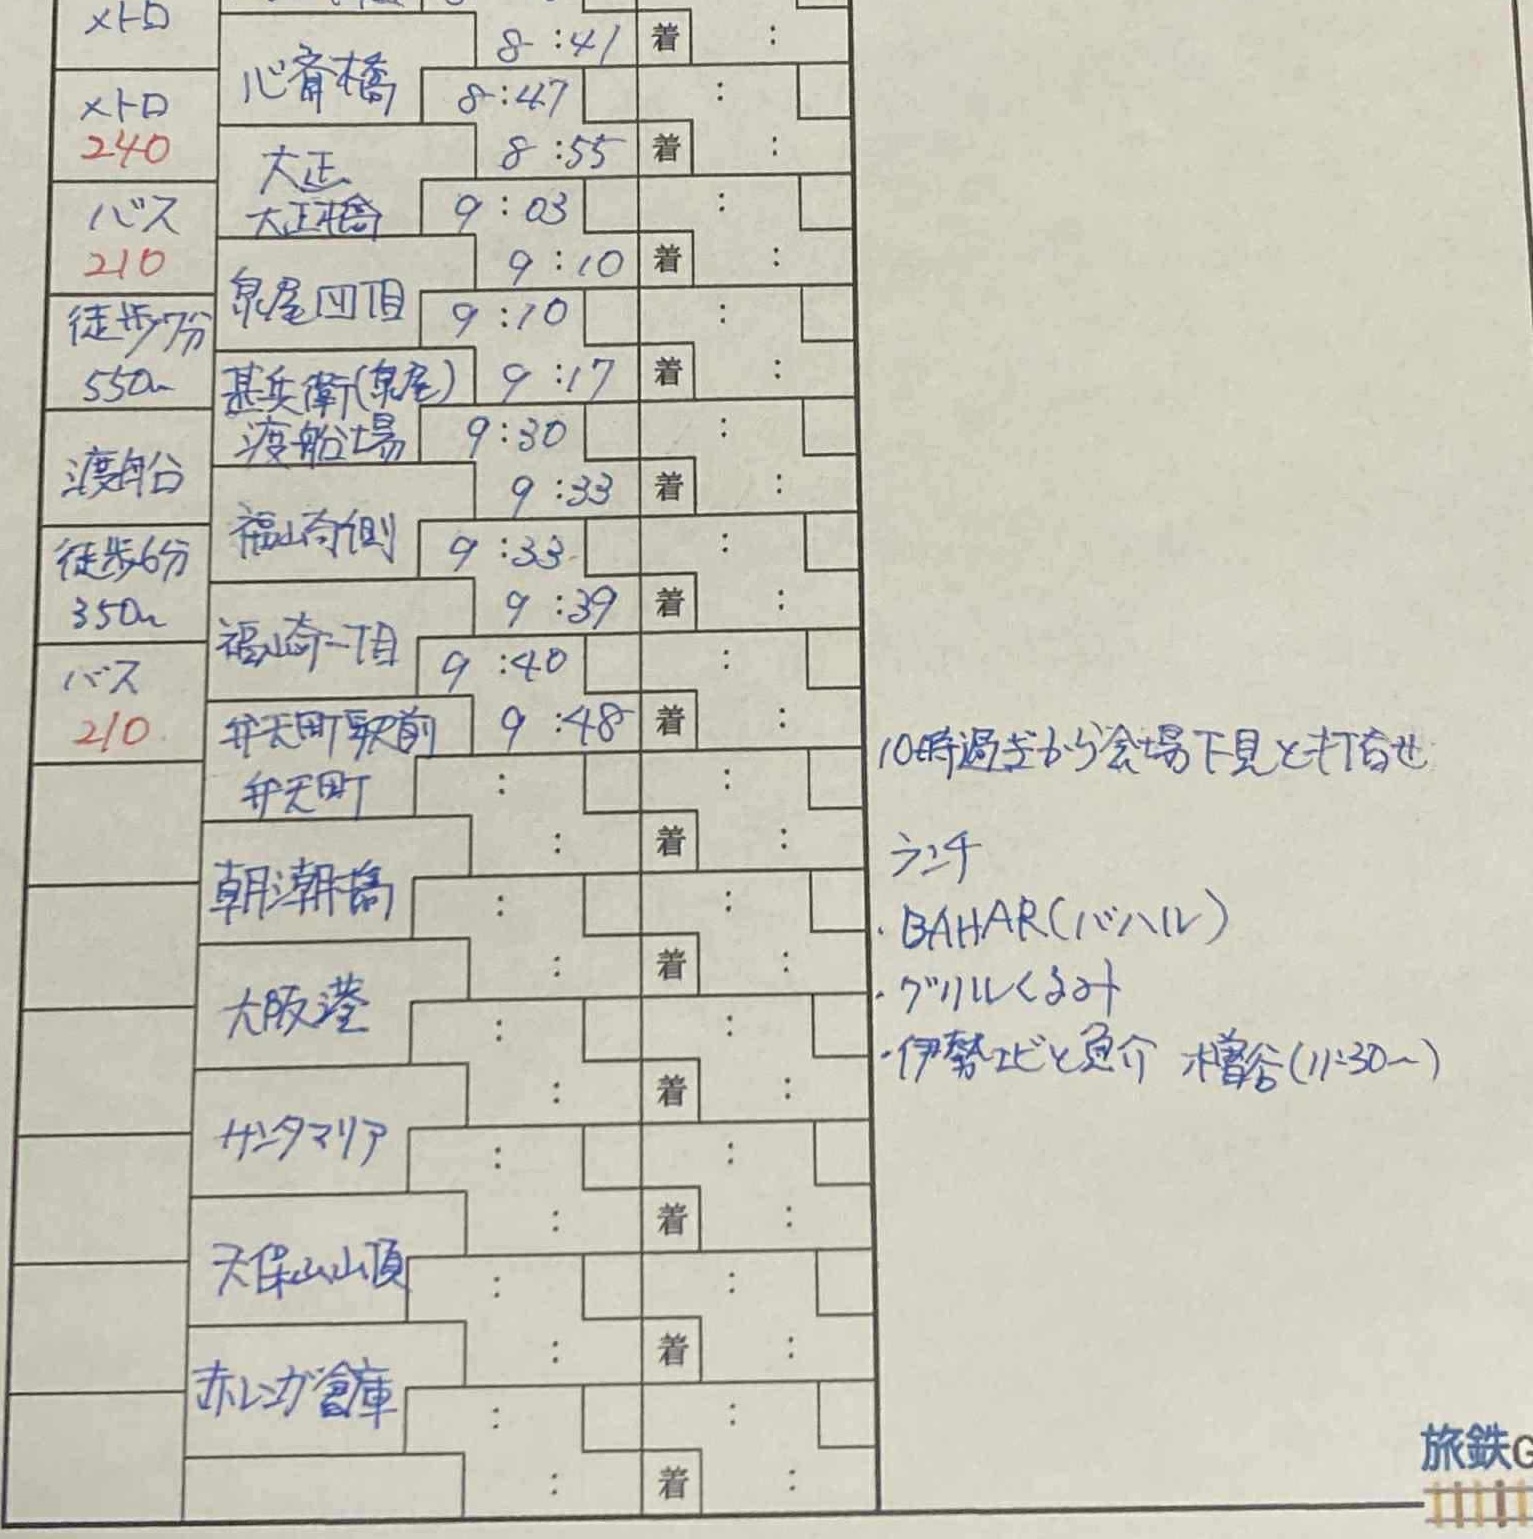 メトロ
8:41 着 :
心斎橋
メトロ 8:47 :
240
8:55 着 :
大正
大正橋 9:03 :
バス
210
9:10 着 :
泉尾四丁目
徒歩7分 9:10 :
550m
甚兵衛(泉尾) 9:17 着 :
渡船場 9:30 :
渡船
9:33 着 :
福崎側
徒歩6分 9:33 :
350m
9:39 着 :
福崎一丁目
バス 9:40 :
210
弁天町駅前 9:48 着 :
10時過ぎから会場下見と打合せ
弁天町 : :
: 着 :
ランチ
朝潮橋
: :
・BAHAR(バハル)
: 着 :
・グリルくるみ
大阪港
: :
・伊勢エビと魚介 樽谷(11:30〜)
: 着 :
サンタマリア
: :
: 着 :
天保山山頂
: :
: 着 :
赤レンガ倉庫
: :
: 着 :
旅鉄G